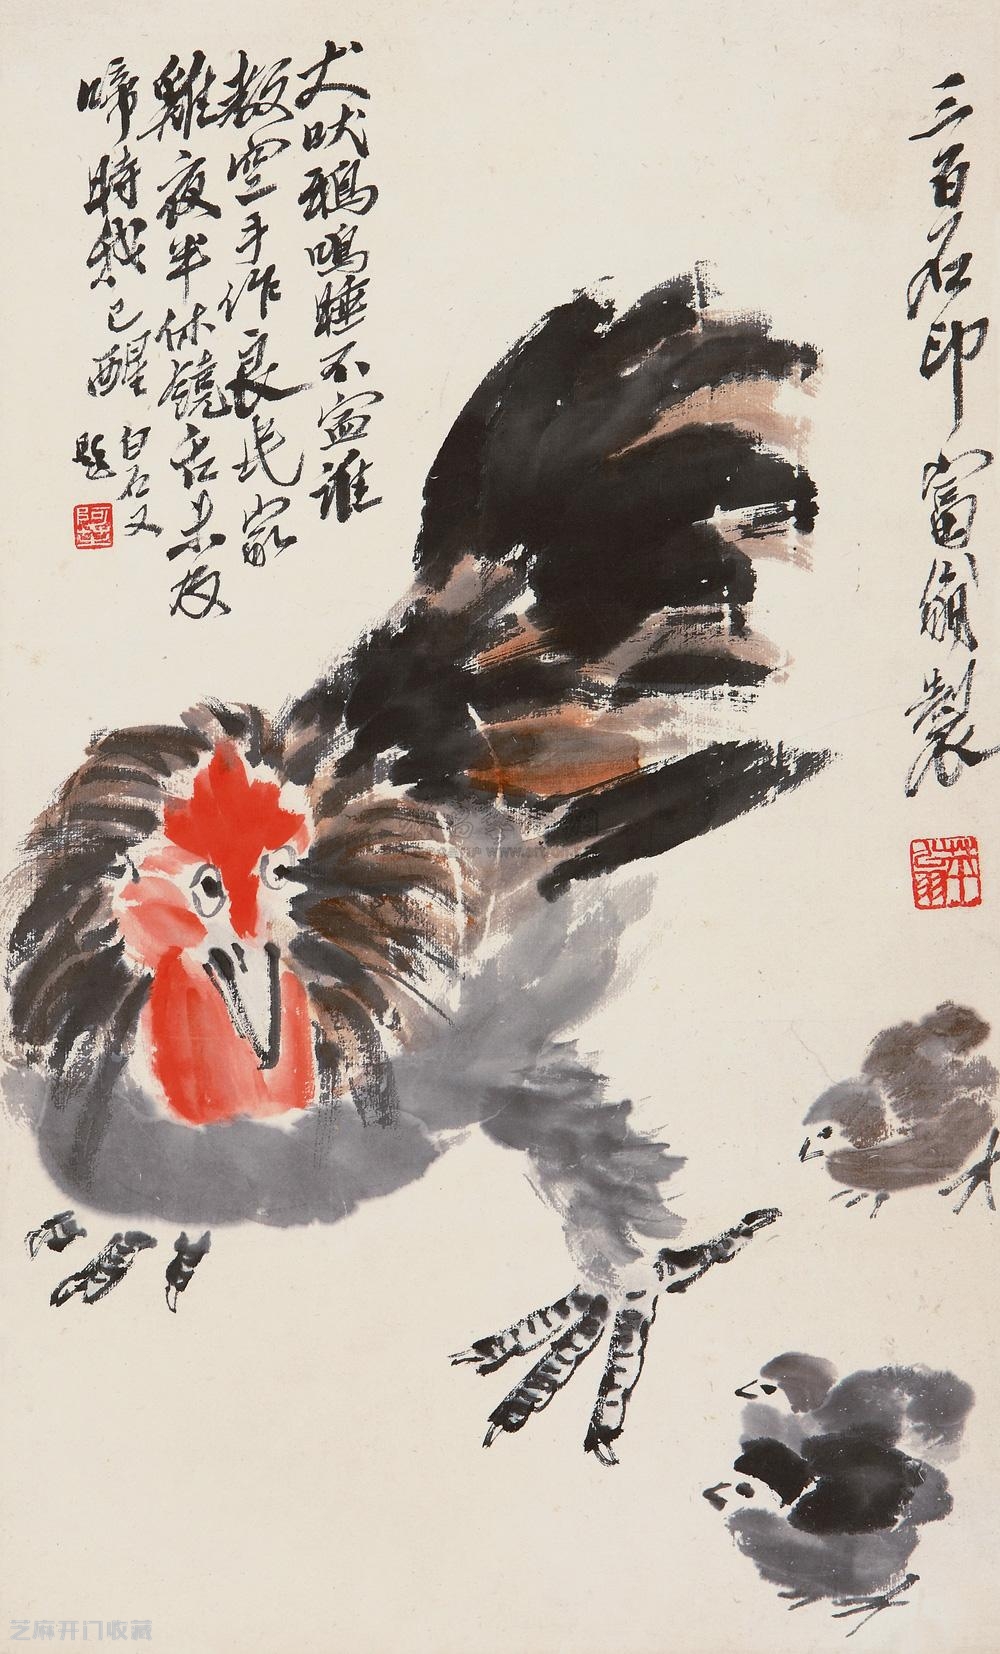 三百石印富翁製
犬吠鵝鳴睡不寍誰
教空手作良民家
雞夜半休饒舌未及
啼時我已醒
白石又
題
阿芝
芝麻开门收藏